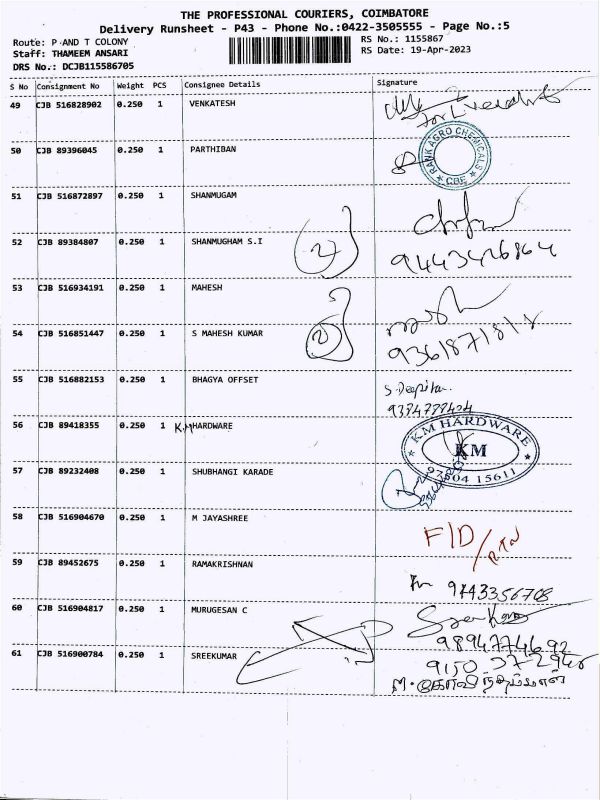 THE PROFESSIONAL COURIERS, COIMBATORE
Delivery Runsheet - P43 - Phone No.:0422-3505555 - Page No.:5
Route: P AND T COLONY
RS No.: 1155867
Staff: THAMEEM ANSARI
RS Date: 19-Apr-2023
DRS No.: DCJB115586705
S No Consignment No Weight PCS Consignee Details Signature
49 CJB 516828902 0.250 1 VENKATESH
50 CJB 89396045 0.250 1 PARTHIBAN
RANK AGRO CHEMICALS
CBE
51 CJB 516872897 0.250 1 SHANMUGAM
52 CJB 89384807 0.250 1 SHANMUGHAM S.I
2
9443426864
53 CJB 516934191 0.250 1 MAHESH
54 CJB 516851447 0.250 1 S MAHESH KUMAR
2
55 CJB 516882153 0.250 1 BHAGYA OFFSET
S. Deepika.
56 CJB 89418355 0.250 1 K.M HARDWARE
KM HARDWARE
KM
93604 15611
57 CJB 89232408 0.250 1 SHUBHANGI KARADE
58 CJB 516904670 0.250 1 M JAYASHREE
F/D/RTN
59 CJB 89452675 0.250 1 RAMAKRISHNAN
9443356708
60 CJB 516904817 0.250 1 MURUGESAN C
9894774692
61 CJB 516900784 0.250 1 SREEKUMAR